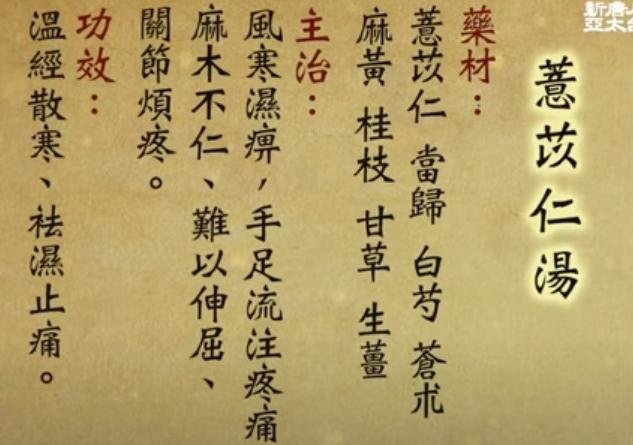 薏苡仁湯
藥材：
薏苡仁 當歸 白芍 蒼朮
麻黃 桂枝 甘草 生薑
主治：
風寒濕痹，手足流注疼痛
麻木不仁、難以伸屈、
關節煩疼。
功效：
溫經散寒、祛濕止痛。
新唐人
亞太台